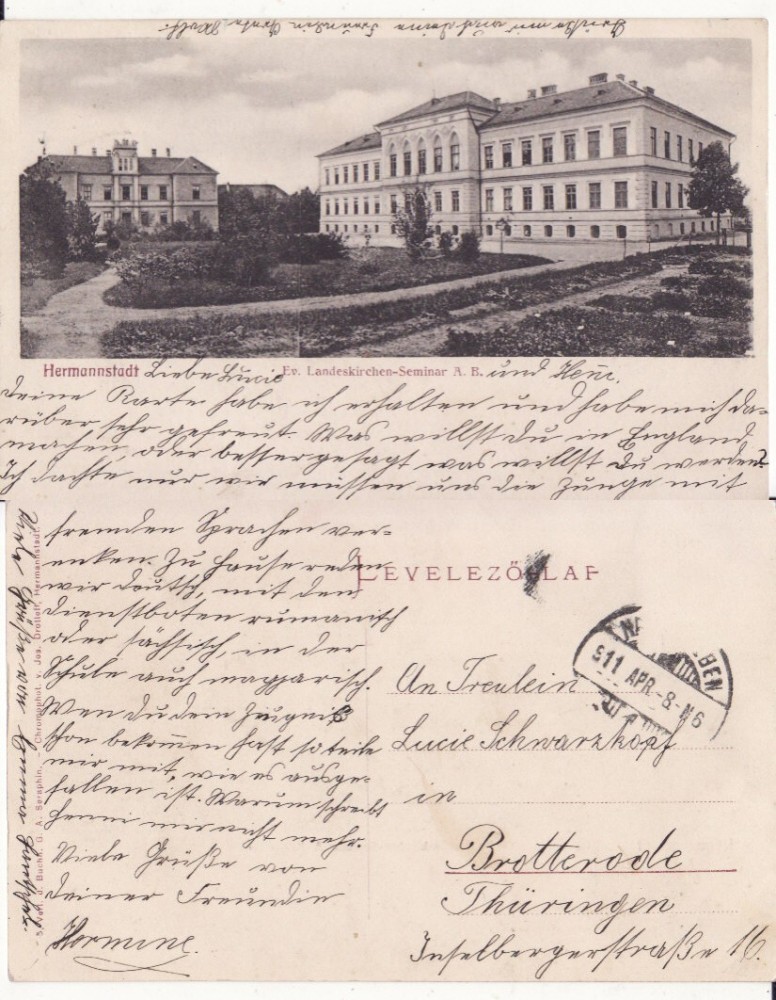 Hermannstadt
Ev. Landeskirchen-Seminar A. B.
Liebe Lucie und Henni.
deine Karte habe ich erhalten und habe mich da-
rüber sehr gefreut. Was willst du in England
machen, oder besser gesagt was willst du werden?
Ich dachte nur wir müssen uns die Zunge mit
fremden Sprachen ver-
renken. Zu Hause reden
wir deutsch, mit den
Dienstboten rumänisch
oder sächsisch, in der
Schule auch magyarisch.
Wen du dein Zeugniß
schon bekommen hast so teile
mir mit, wie es ausge-
fallen ist. Warum schreibt
Henni mir nicht mehr.
Viele Grüße von
deiner Freundin
Hermine.
Viele Grüße von Emma
LEVELEZŐ-LAP
911 APR -8 N6
An Freulein
Lucie Schwarzkopf
in
Brotterode
Thüringen
Inselbergerstraße 16.
Verl. d. Buchh. G. A. Seraphin. - Chromophot. v. Jos. Drotleff, Hermannstadt.